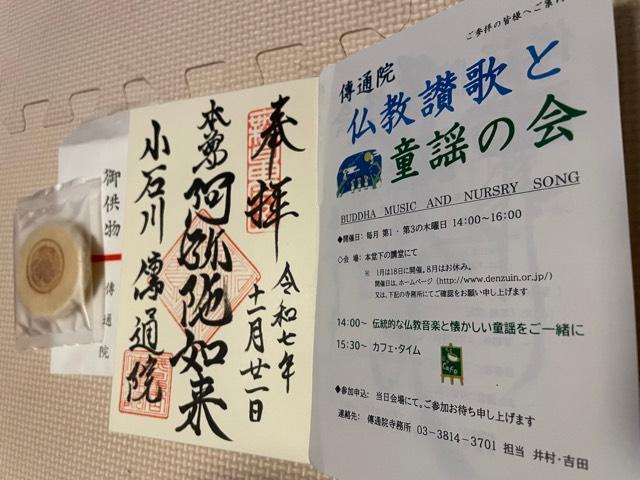 ご参拝の皆様へご案内
傳通院
仏教讃歌と
童謡の会
BUDDHA MUSIC AND NURSRY SONG
◆開催日：毎月 第1・第3の木曜日 14:00～16:00
◇会 場：本堂下の講堂にて
※ 1月は18日に開催。8月はお休み。
開催日は、ホームページ(http://www.denzuin.or.jp/)
又は、下記の寺務所にてご確認をお願い申し上げます
14:00～ 伝統的な仏教音楽と懐かしい童謡をご一緒に
15:30～ カフェ・タイム
Cafe
◆参加申込： 当日会場にて。ご参加お待ち申し上げます
連絡先： 傳通院寺務所 03-3814-3701 担当 井村・吉田
奉拝
令和七年
十一月廿一日
本尊 阿弥陀如来
小石川 傳通院
御供物 傳通院